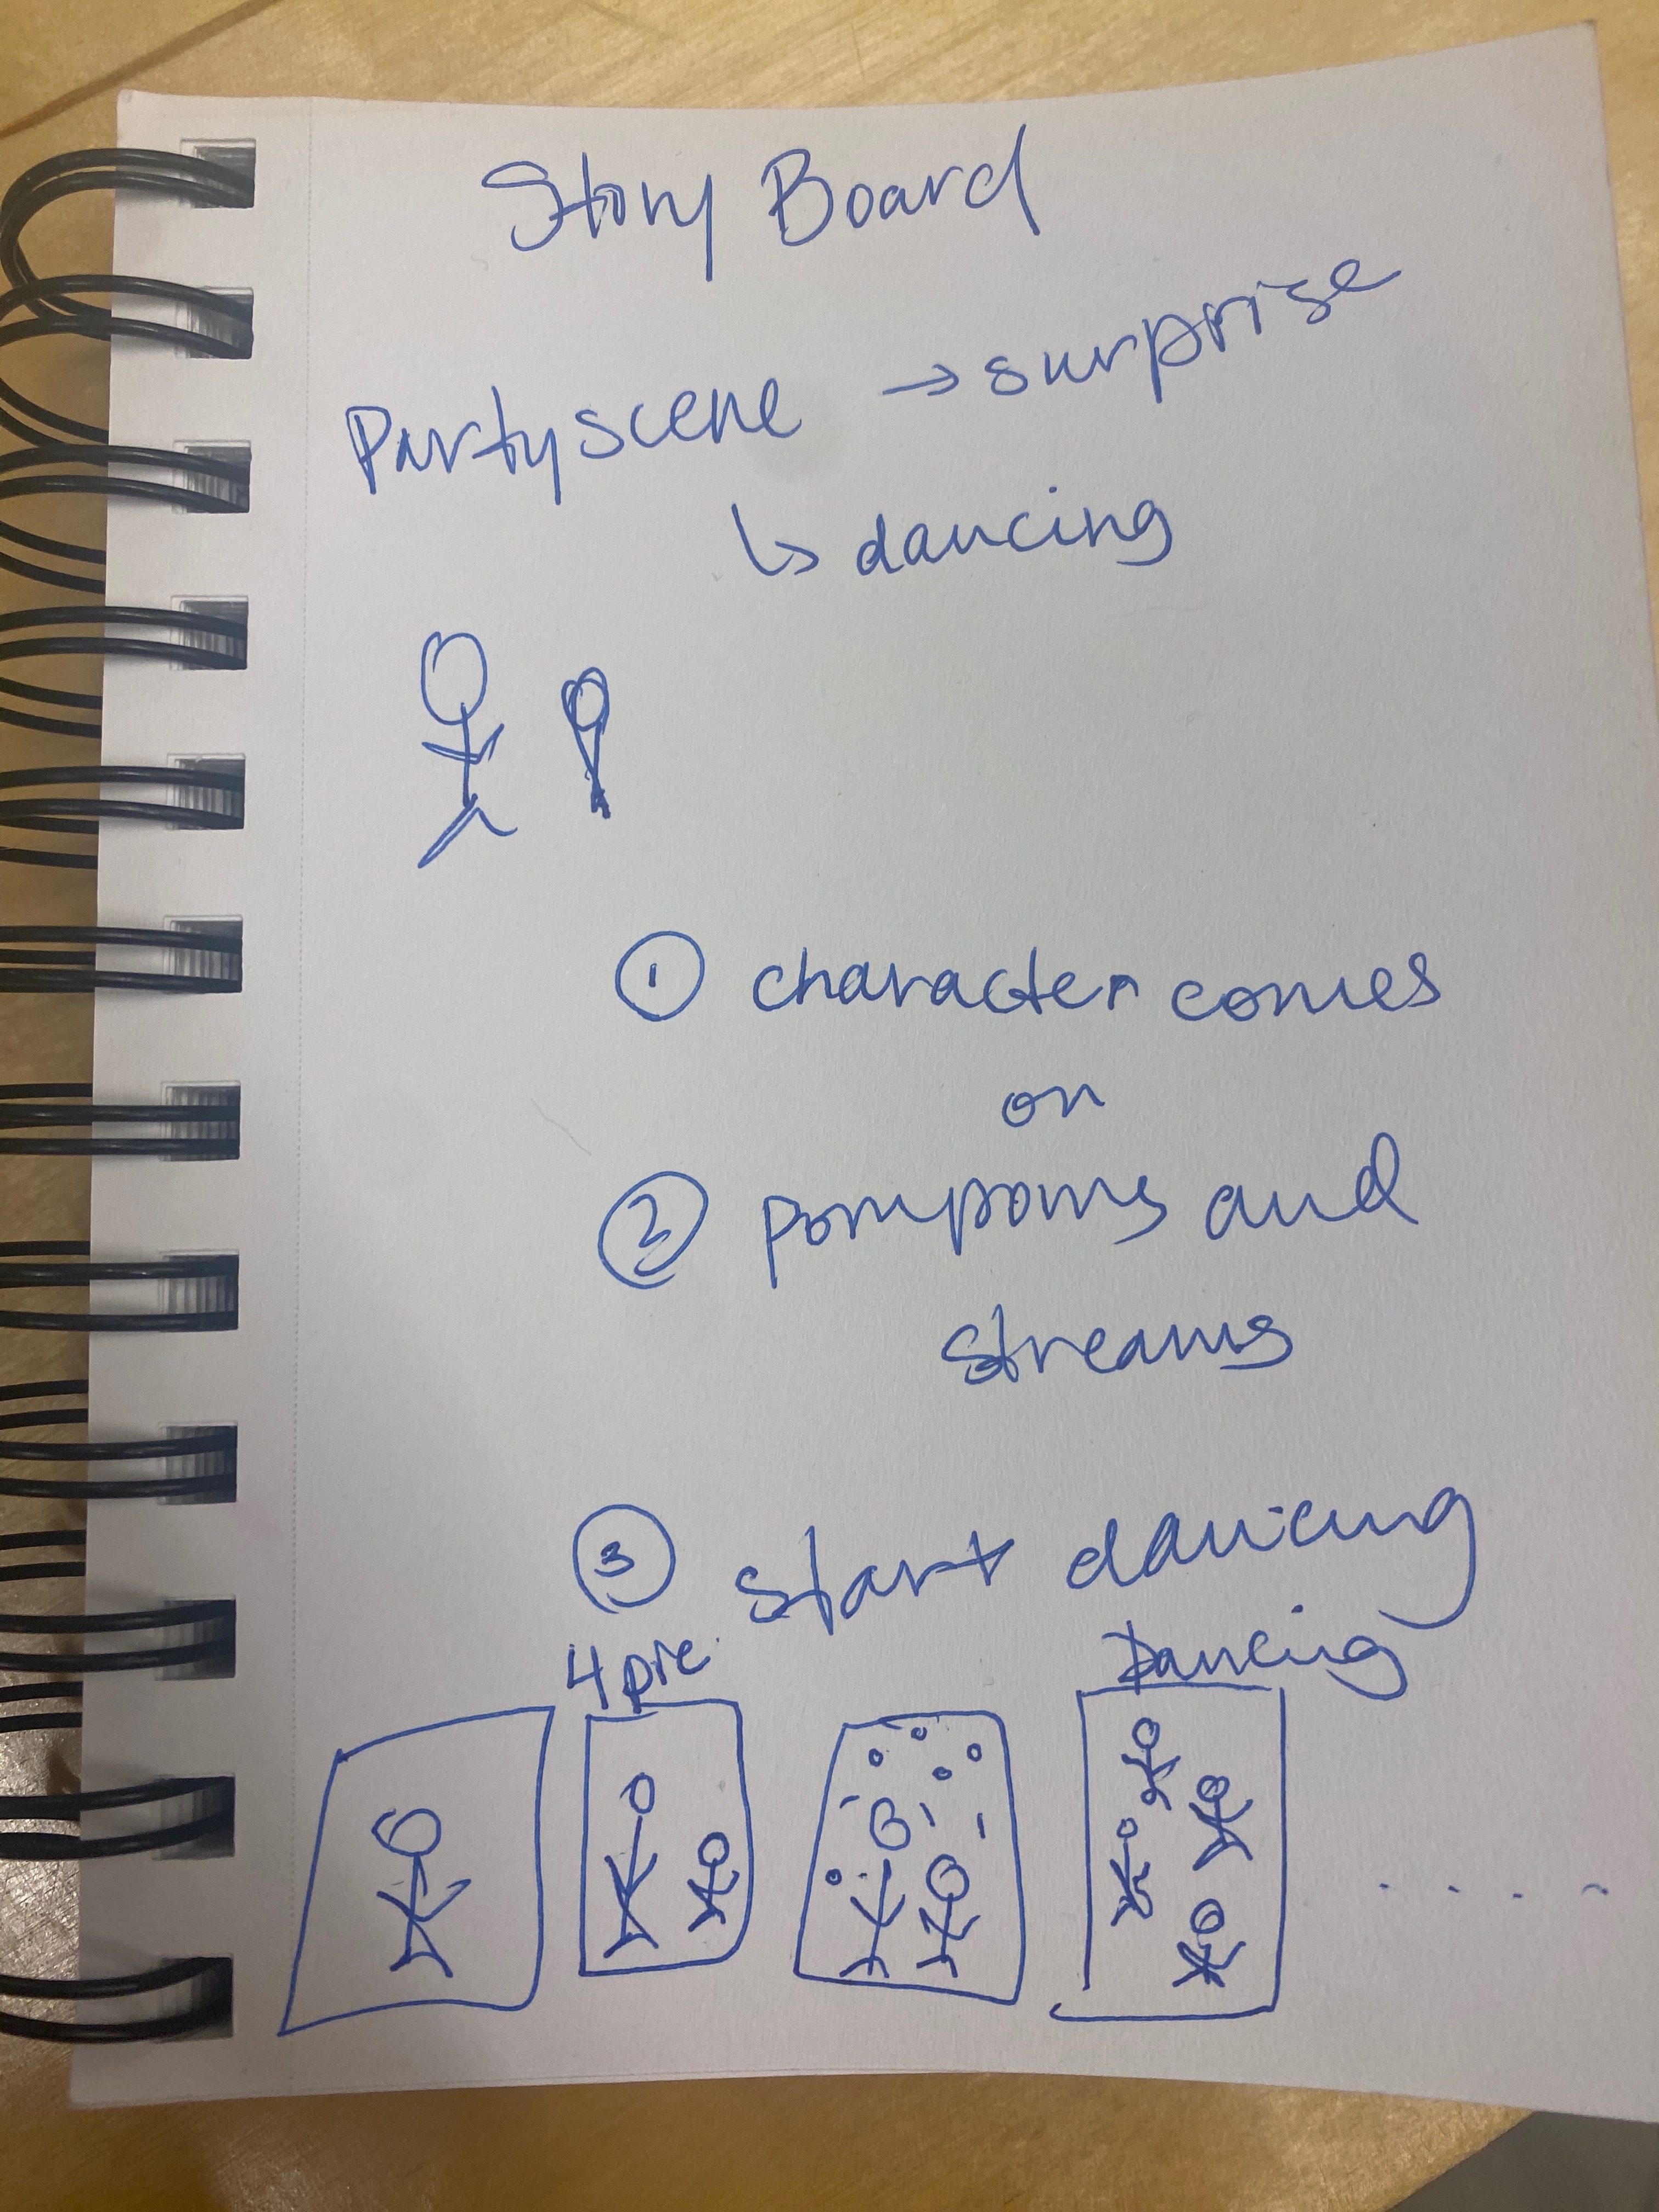 Story Board
Party scene → surprise
↳ dancing
① character comes
on
② pompoms and
streams
③ start dancing
4 pic.
Dancing
. . . .